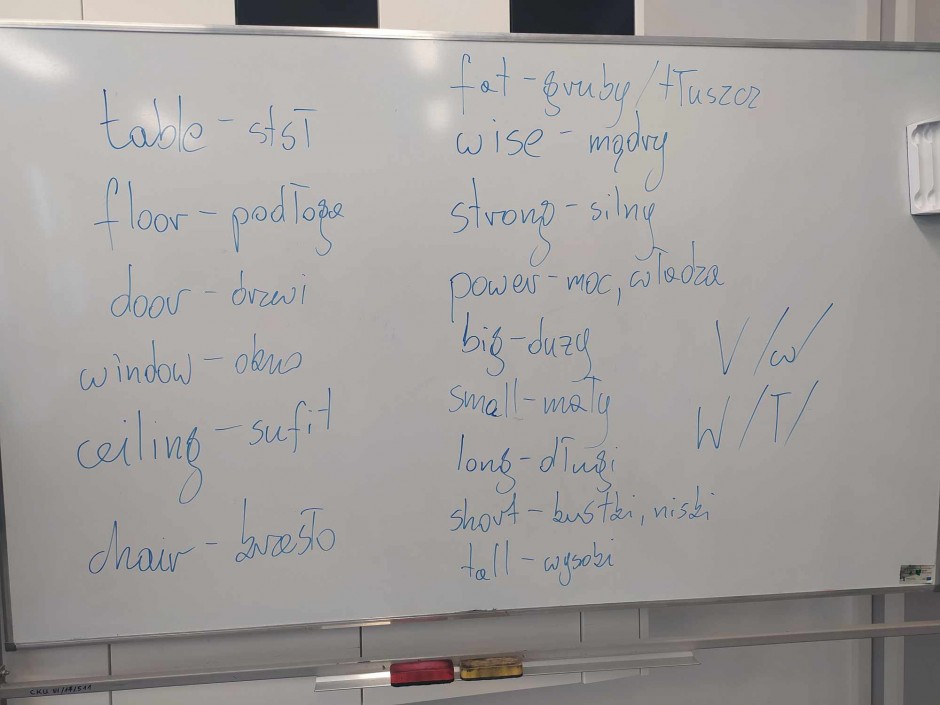 table - stół
floor - podłoga
door - drzwi
window - okno
ceiling - sufit
chair - krzesło
fat - gruby / tłuszcz
wise - mądry
strong - silny
power - moc, władza
big - duzy
small - mały
long - długi
short - krótki, niski
tall - wysoki
V /w/
W /ł/
CKU